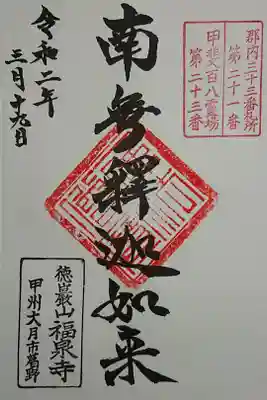 郡内三十三番札所
第二十一番
甲斐百八霊場
第二十三番
南無釋迦如来
令和二年
三月十九日
徳巖山福泉寺
甲州大月市葛野